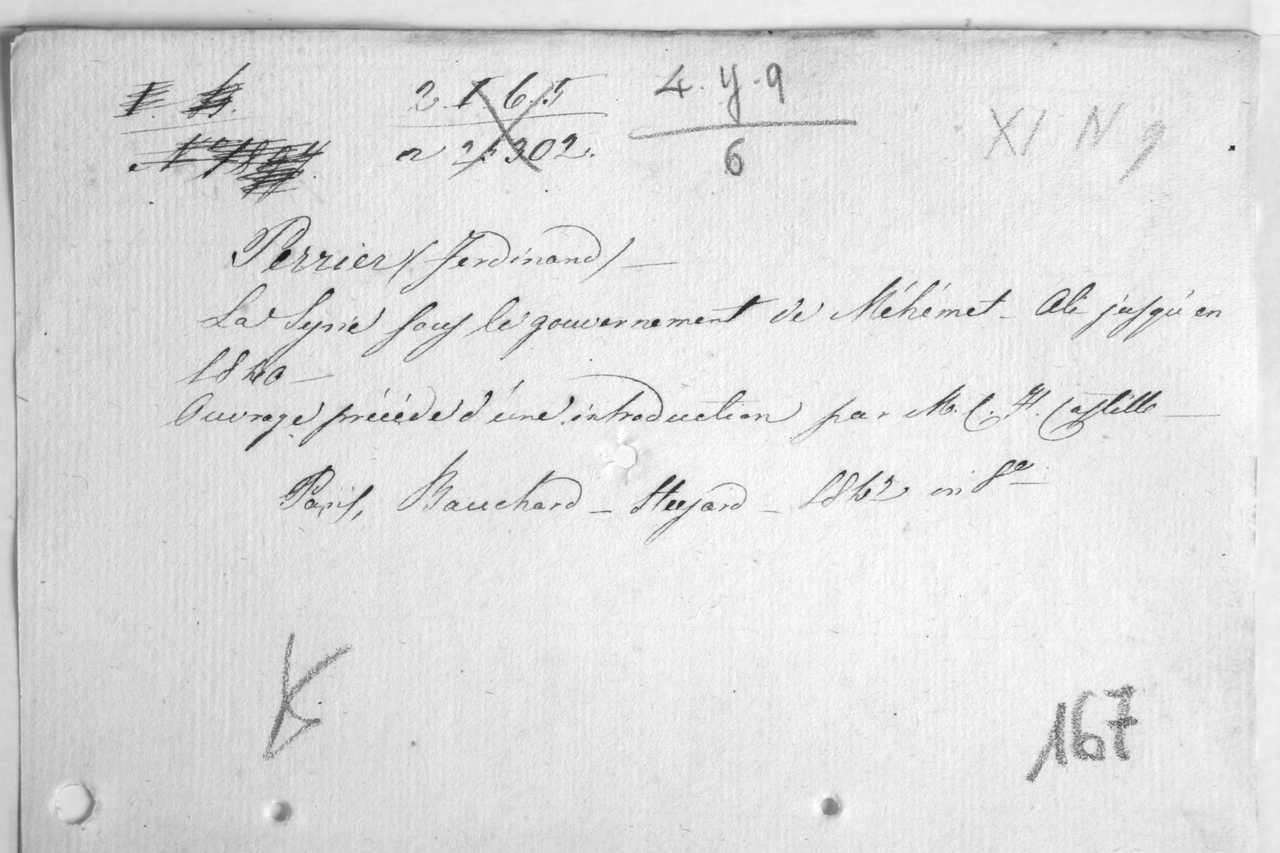 2. I. 6. 5 4. y. 9 XI N 9
n 21302. 6
Perrier (Ferdinand) —
La Syrie sous le gouvernement de Méhémet - Ali jusqu'en
1840 —
Ouvrage précédé d'une introduction par M. C. H. Castille —
Paris, Bauchard - 1842 in 8º
167